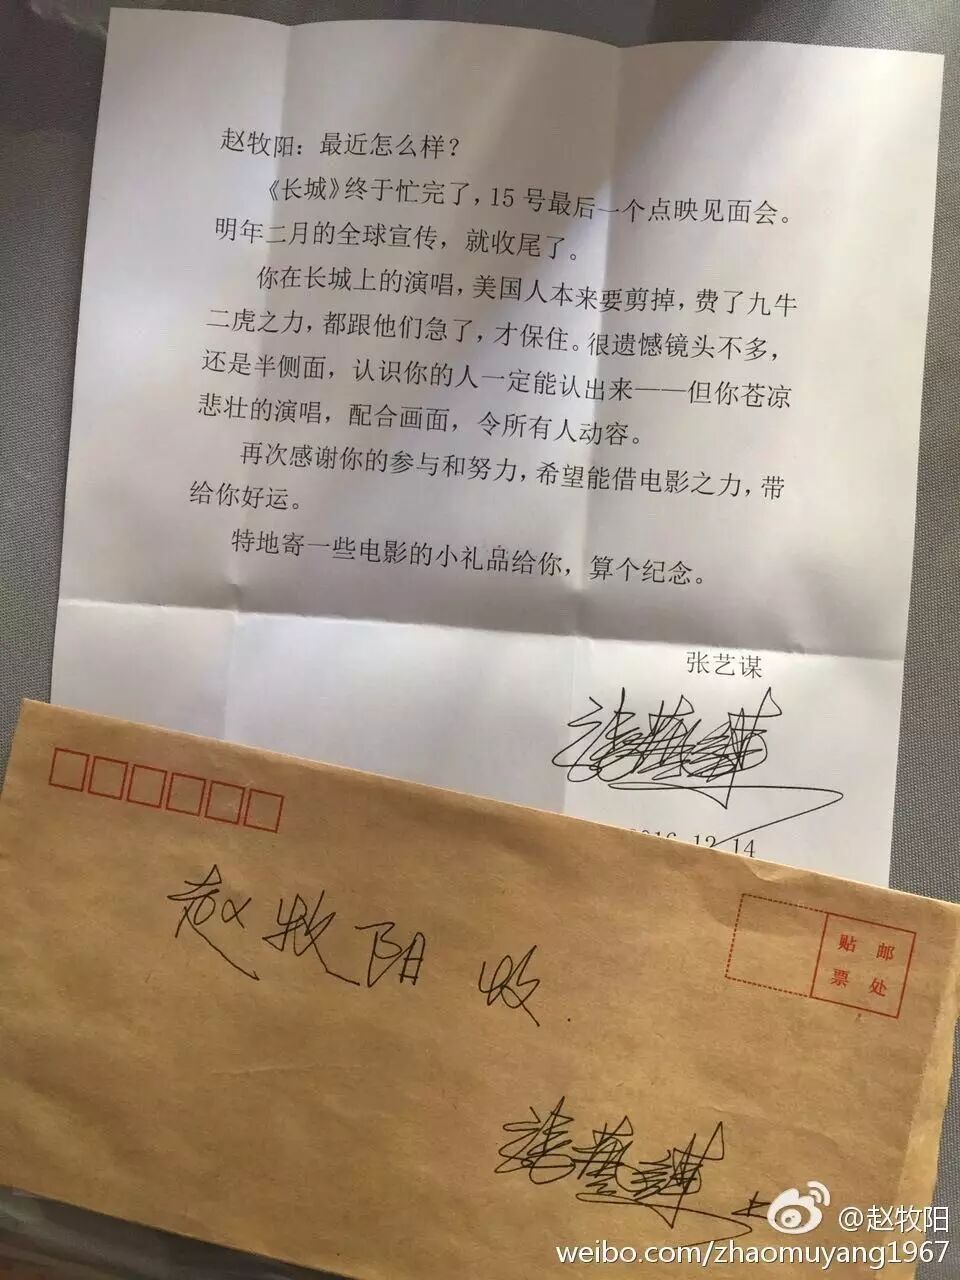 赵牧阳：最近怎么样？
《长城》终于忙完了，15 号最后一个点映见面会。
明年二月的全球宣传，就收尾了。
你在长城上的演唱，美国人本来要剪掉，费了九牛
二虎之力，都跟他们急了，才保住。很遗憾镜头不多，
还是半侧面，认识你的人一定能认出来——但你苍凉
悲壮的演唱，配合画面，令所有人动容。
再次感谢你的参与和努力，希望能借电影之力，带
给你好运。
特地寄一些电影的小礼品给你，算个纪念。
张艺谋
张艺谋
2016.12.14
赵牧阳 收
贴邮
票处
张艺谋
@赵牧阳
weibo.com/zhaomuyang1967